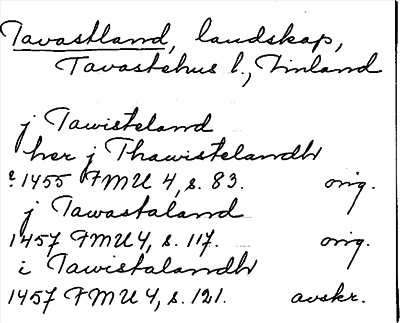 Tavastland, landskap,
Tavastehus l., Finland
j Tawisteland
her j Thawistelandh
? 1455 FMU 4, s. 83. orig.
j Tawastaland
1457 FMU 4, s. 117. orig.
i Tawistalandh
1457 FMU 4, s. 121. avskr.